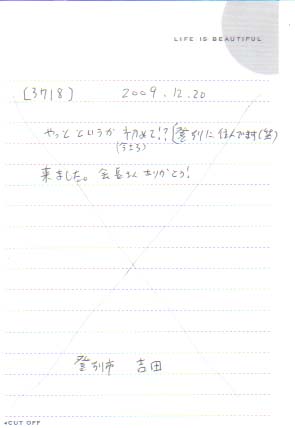 LIFE IS BEAUTIFUL
[3718] 2009.12.20
やっとというか初めて!?(登別に住んでます(笑)
(今さら)
来ました。会長さんありがとう!
登別市 吉田
◂CUT OFF